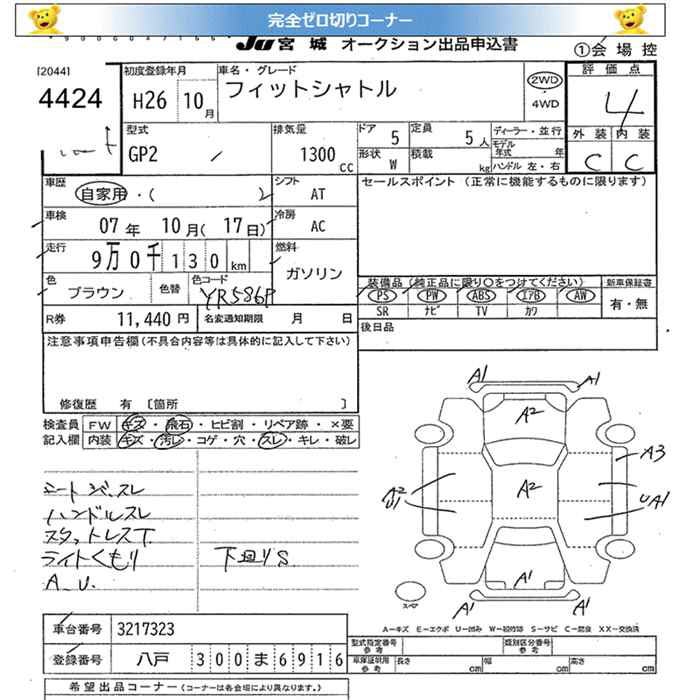 完全ゼロ切りコーナー
JU宮城 オークション出品申込書
①会場控
[2044]
4424
初度登録年月
H26 10月
車名・グレード
フィットシャトル
2WD
4WD
評価点
4
外装 内装
C C
型式
GP2
排気量
1300cc
ドア 5
定員 5人
形状 W
積載 kg
ディーラー・並行
モデル年式 年
ハンドル 左・右
車歴
自家用・( )
シフト
AT
セールスポイント (正常に機能するものに限ります)
車検
07年 10月(17日)
冷房
AC
走行
9万0千130km
燃料
ガソリン
色
ブラウン
色替
色コード
YR586P
装備品 (純正品に限り○をつけてください)
PS PW ABS エアB AW
SR ナビ TV カワ
新車保証書
有・無
R券 11,440円
名変通知期限 月 日
後日品
注意事項申告欄(不具合内容等は具体的に記入して下さい)
修復歴 有 〔箇所 〕
検査員記入欄
FW キズ・飛石・ヒビ割・リペア跡・×要
内装 キズ・汚レ・コゲ・穴・スレ・キレ・破レ
シートジスレ
ハンドルスレ
スタットレスT
ライトくもり
下廻りS
A.U.
A1 A1
A2
A3
A2
U1
A2
UA1
A1
A1 A1
スペア
A-キズ E-エクボ U-凹み W-補修跡 S-サビ C-腐食 XX-交換済
車台番号 3217323
登録番号 八戸 300ま6916
型式指定番号 参考
類別区分番号 参考
車庫証明用 参考
長さ cm 幅 cm 高さ cm
希望出品コーナー (コーナーは各会場により異なります。)